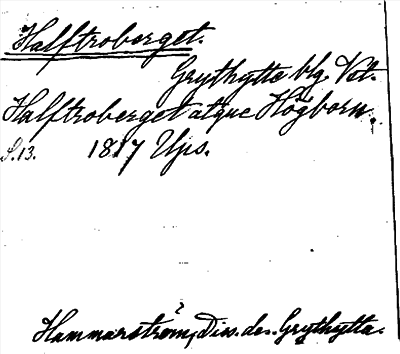 Halftroberget.
Grythytte blg. Vst.
Halftroberget atque Högborn.
S. 13. 1817 Ups.
Hammarström, Diss. de. Grythytta.